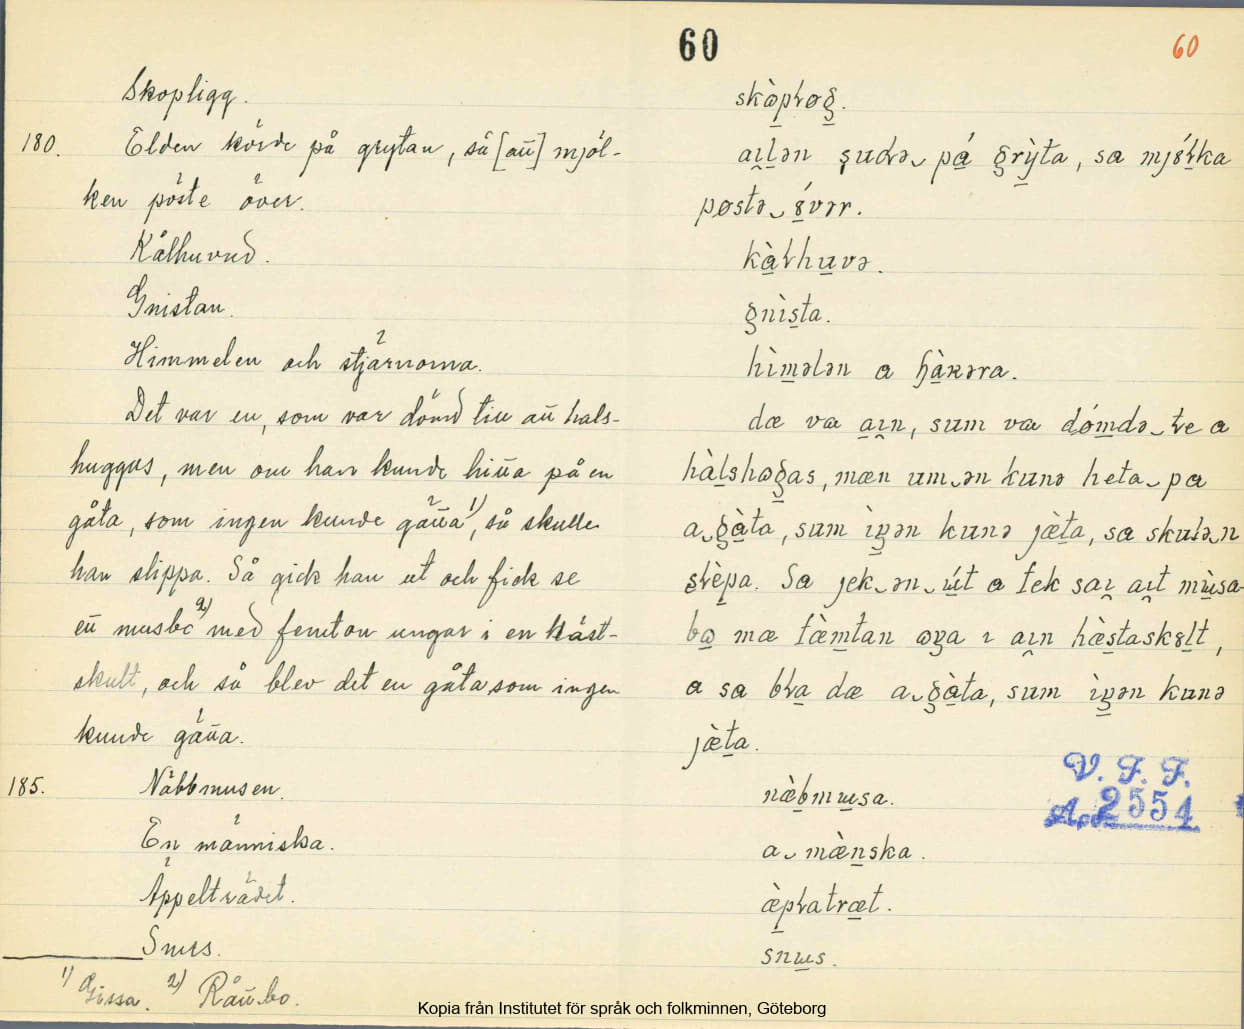 60
60
Skopligg.
180. Elden körde på grytan, så [att] mjöl-
ken pöste över.
Kålhuvud.
Gnistan.
Himmelen och stjärnorna.
Det var en, som var dömd till att hals-
huggas, men om han kunde hitta på en
gåta, som ingen kunde gätta 1), så skulle
han slippa. Så gick han ut och fick se
ett musbo 2) med femton ungar i en häst-
skult, och så blev det en gåta som ingen
kunde gätta.
185. Näbbmusen.
En människa.
Äppelträdet.
Snus.
1) Gissa. 2) Råttbo.
skòpɫøg.
aı̯lən ʂudɫə‿ på grỳta, sa mjɞ́ɫka
pøstə‿ ɞ́vər.
kàɫhuvə.
gnìsta.
hìmələn a ɧàɴəra.
dæ va aı̯n, sum va dǿmdə‿ te a
hàlshɷgas, mæn um‿ən kunə heta‿ pa
a‿gàta, sum ìŋən kunə jæ̀ta, sa skulə‿n
sɫèpa. Sa jek‿ən‿ út a fek saı̯ aı̯t mɯ̀sa-
bɷ mæ fæ̀mtan ɷŋa ı aı̯n hæ̀staskɞlt,
a sa bɫa dæ a‿gàta, sum ìŋən kunə
jæ̀ta.
næ̀bmɯsa.
a‿ mæ̀nska.
æ̀pɫatræt.
snɯs.
V. F. F.
2554
Kopia från Institutet för språk och folkminnen, Göteborg